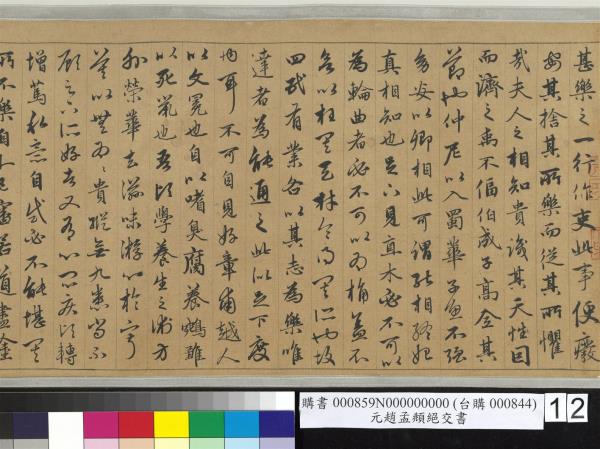 甚樂之一行作吏此事便廢
安能捨其所樂而從其所懼
哉夫人之相知貴識其天性因
而濟之禹不偪伯成子高全其
節也仲尼以入蜀華子魚不強
幼安以卿相此可謂能相終始
真相知也足下見直木必不可以
為輪曲者必不可以為桷蓋不
欲以枉其天材令得其所也故
四民有業各以其志為樂唯
達者為能通之此似足下度
內耳不可自見好章甫越人
以文冕也自以嗜臭腐養鴛雛
以死鼠也吾頃學養生之術方
外榮華去滋味游心於寂
莫以無為為貴縱無九患尚不
顧足下所好者又有心悶疾頃轉
增篤私意自試必不能堪其
所不樂自卜已審若道盡途
購書 000859N000000000 (台購 000844)
元趙孟頫絕交書
12